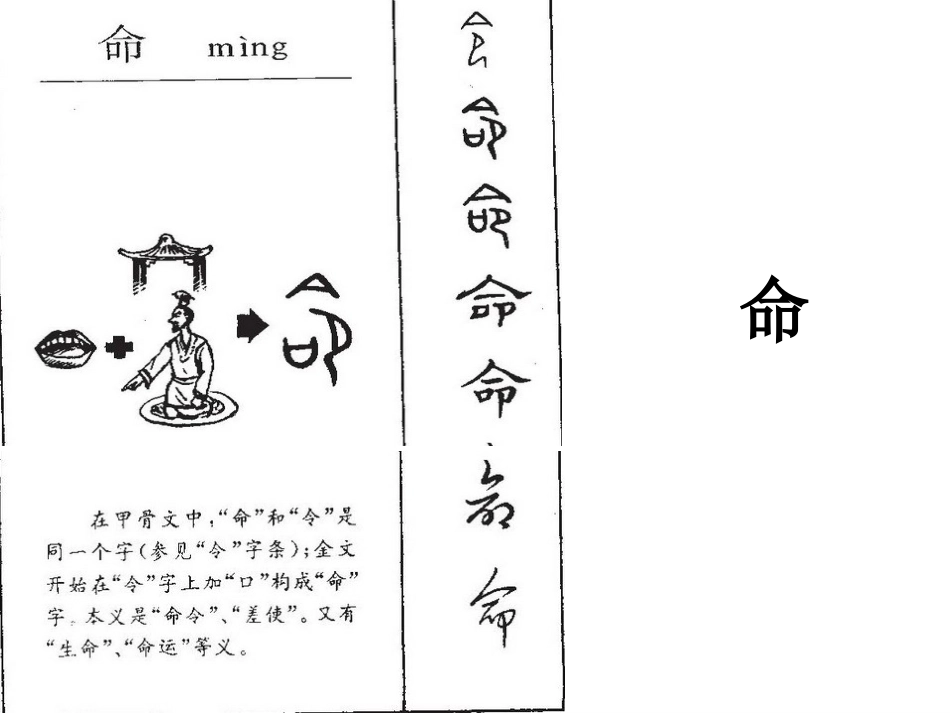 命 mìng
在甲骨文中，“命”和“令”是
同一个字（参见“令”字条）；金文
开始在“令”字上加“口”构成“命”
字。本义是“命令”、“差使”。又有
“生命”、“命运”等义。
命
命
命
命
命
命
命
命